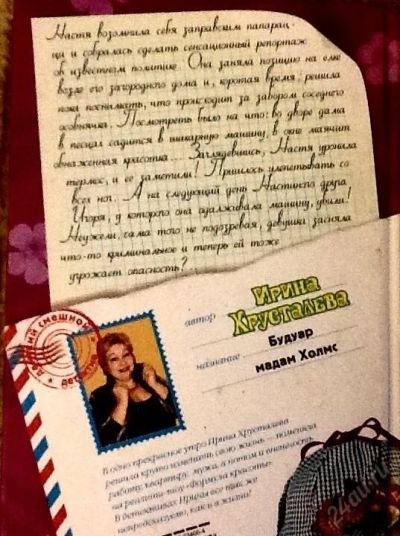 Настя возомнила себя заправским папарац-
ци и собралась сделать сенсационный репортаж
об известном политике. Она заняла позицию на елке
возле его загородного дома и, коротая время, решила
пока поснимать, что происходит за забором соседнего
особнячка. Посмотреть было на что: во дворе дама
в песцах садится в шикарную машину, в окне маячит
обнаженная красотка... Заглядевшись, Настя уронила
термос, и ее заметили! Пришлось улепетывать со
всех ног. А на следующий день Настиного друга
Игоря, у которого она одалживала машину, убили!
Неужели, сама того не подозревая, девушка засняла
что-то криминальное и теперь ей тоже
угрожает опасность?
автор Ирина Хрусталева
название Будуар
мадам Холмс
смешной детектив
В одно прекрасное утро Ирина Хрусталева
решила круто изменить свою жизнь – поменяла
работу, квартиру, мужа, а потом и внешность
на реалити-шоу «Формула красоты».
В детективах Ирины все так же
непредсказуемо, как и в жизни!
24au.ru